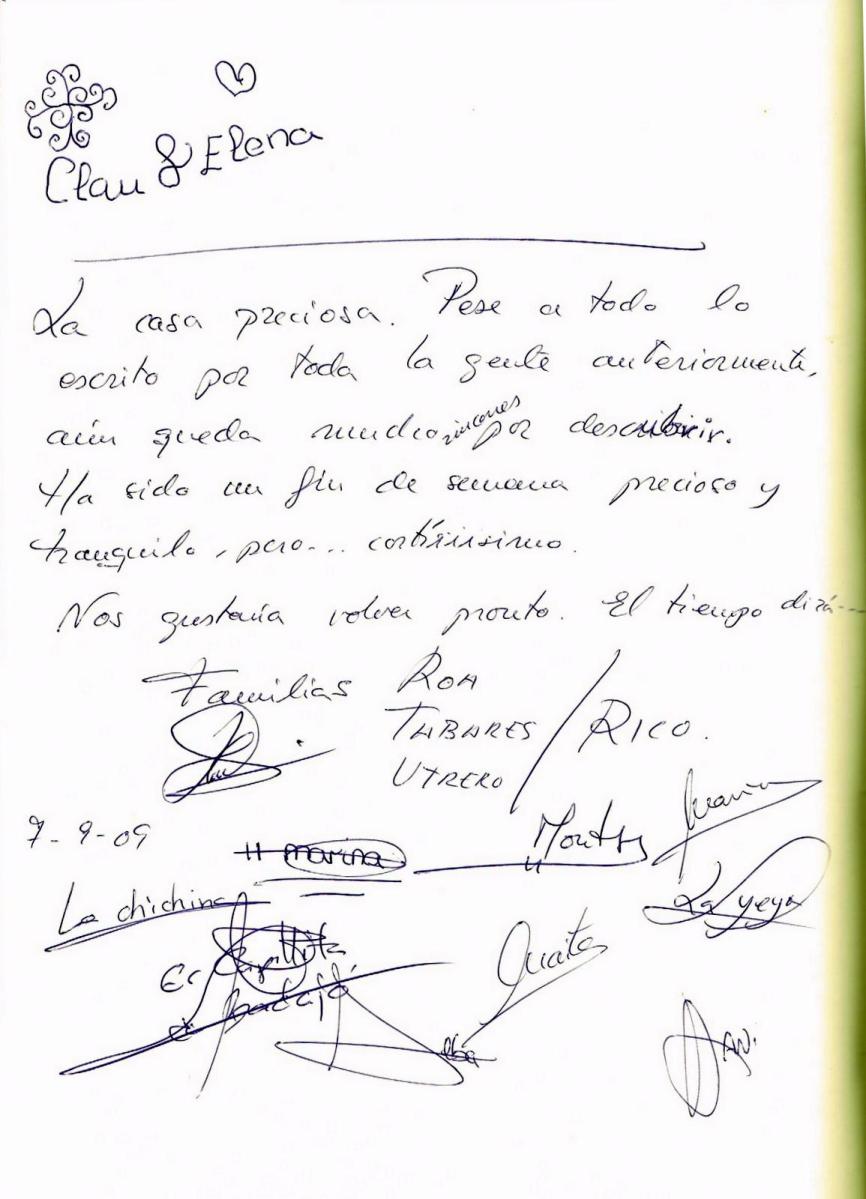 Clau & Elena
La casa preciosa. Pese a todo lo
escrito por toda la gente anteriormente,
aún queda muchos rincones por describir.
Ha sido un fin de semana precioso y
tranquilo, pero... cortísisisimo.
Nos gustaría volver pronto. El tiempo dirá...
Familias ROA
TABARES / RICO.
UTRERO
7-9-09
marina
Montse
La chichina
La yeya
Alba